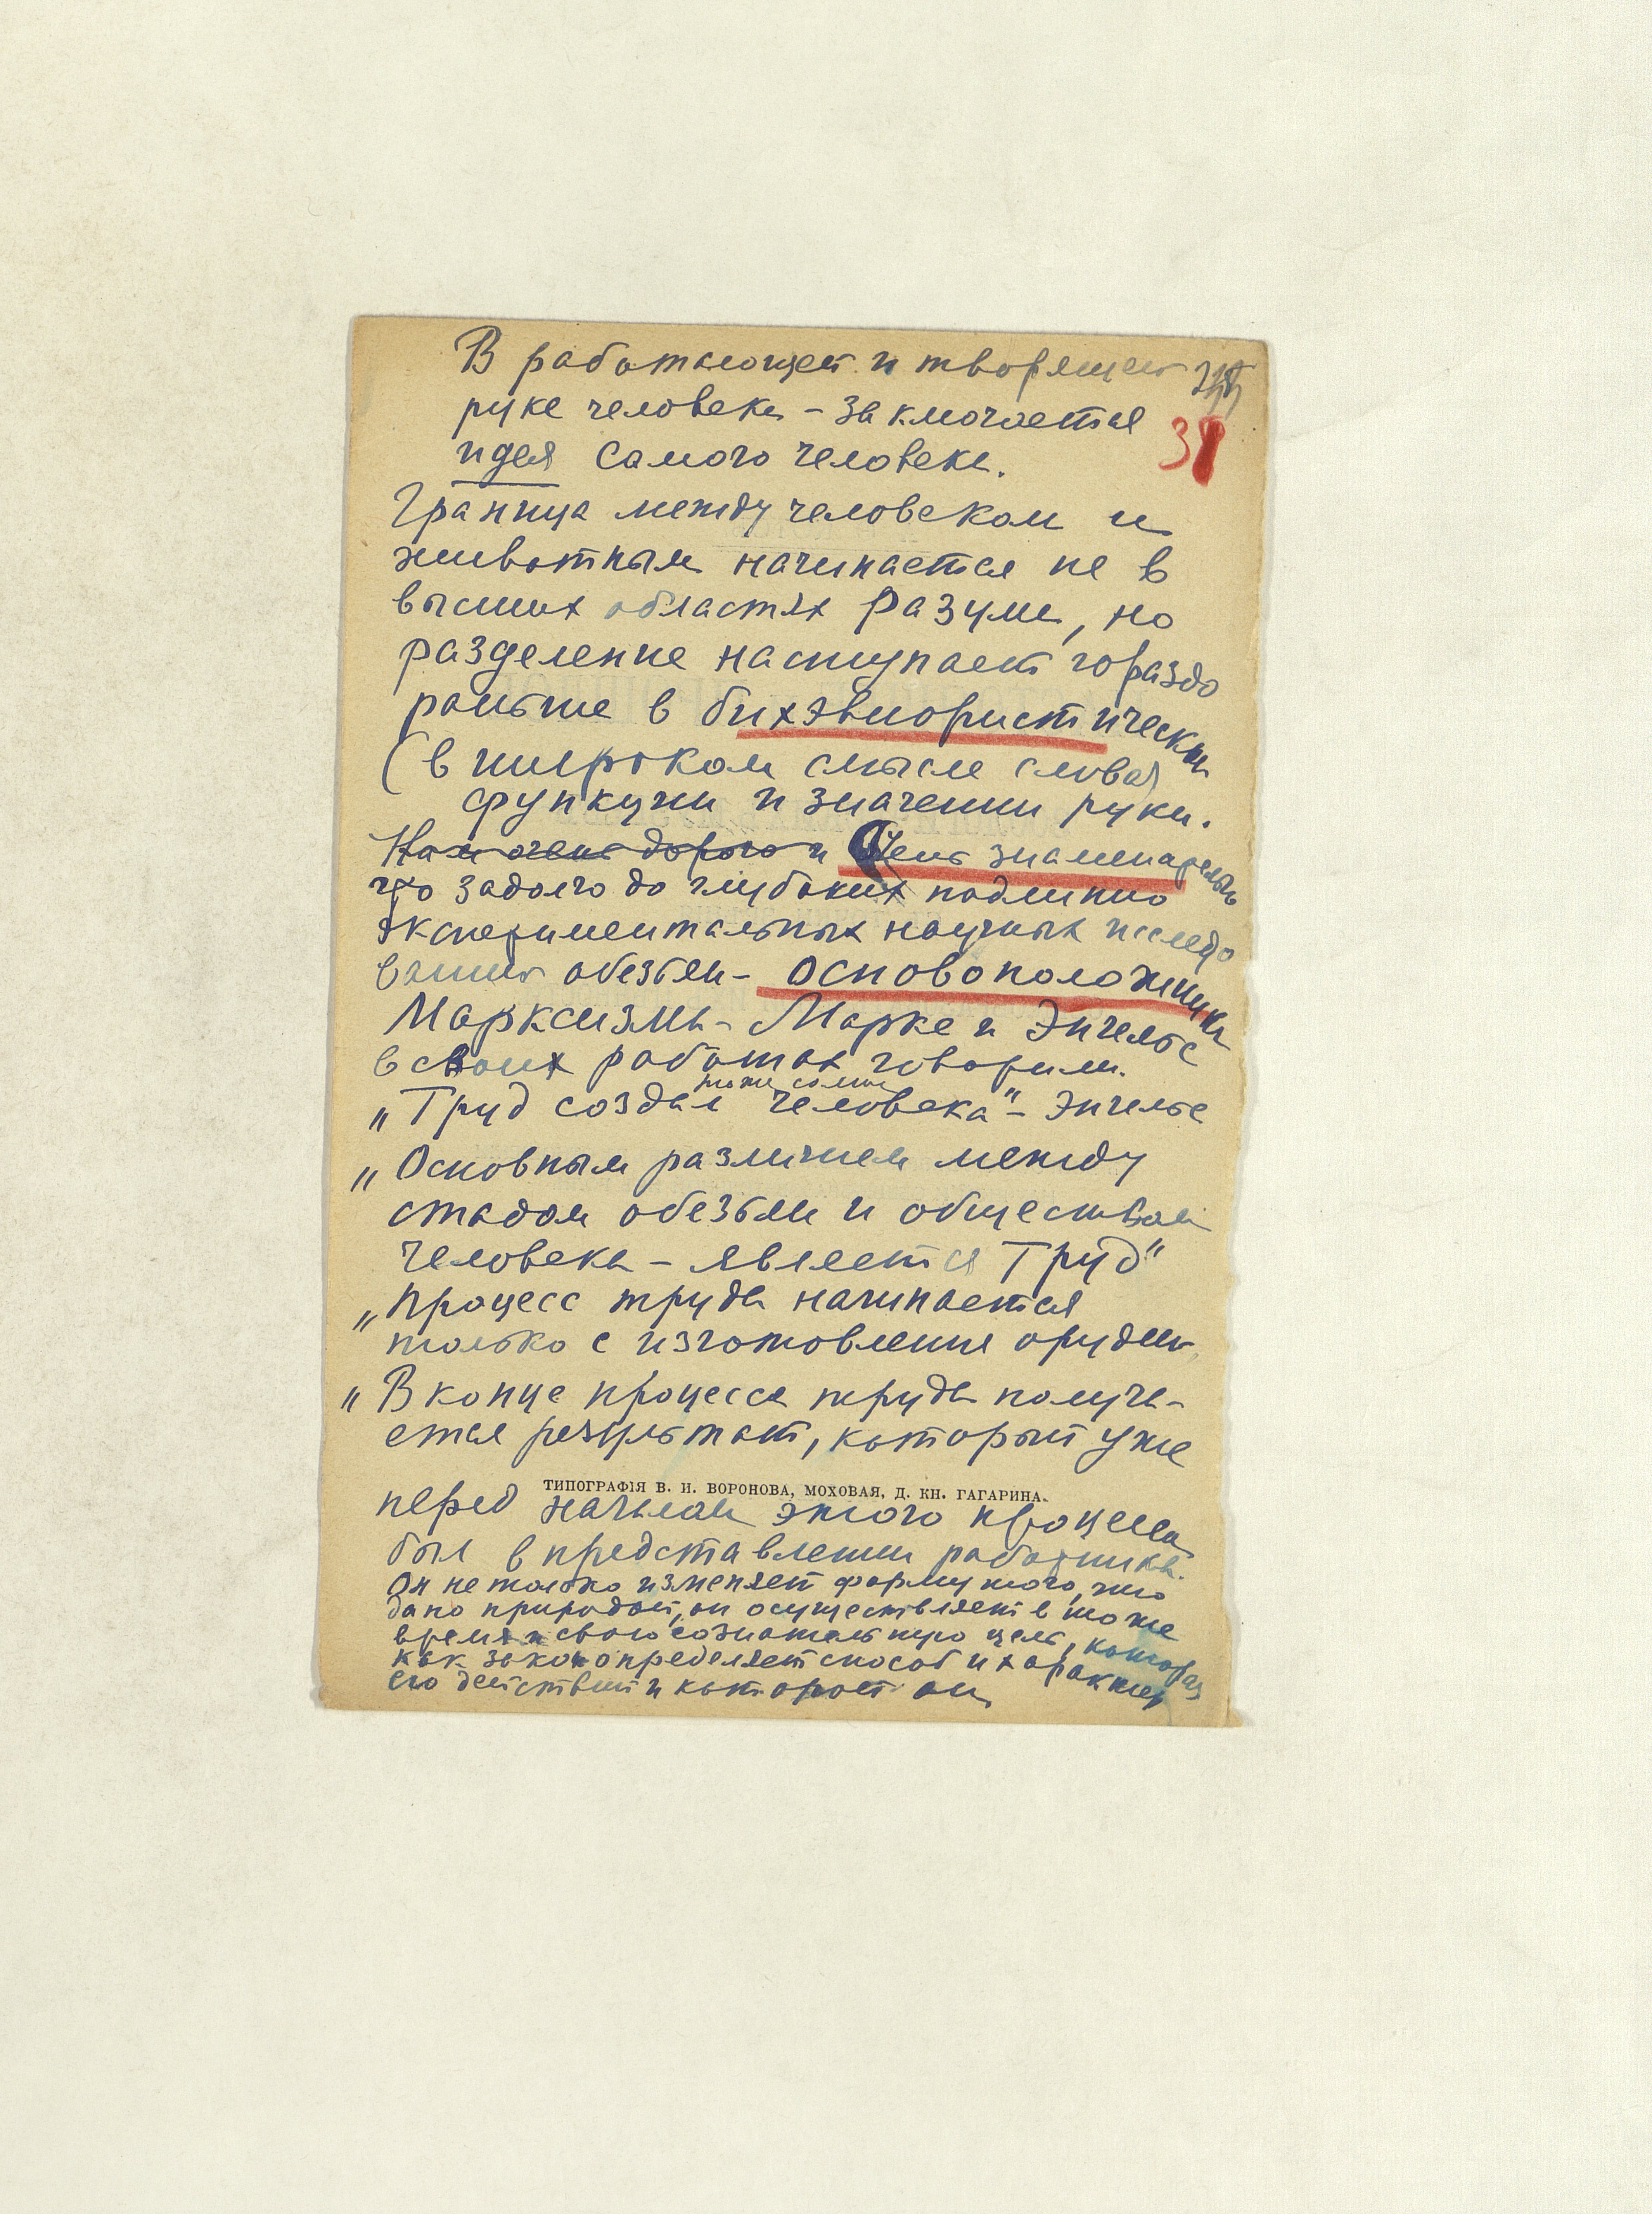 В работающей и творящей
руке человека – заключается
38
идея самого человека.
Граница между человеком и
животным начинается не в
высших областях разума, но
разделение наступает гораздо
раньше в бихэвиористических
(в широком смысле слова)
функции и значении руки.
Нам очень дорого и Очень знаменательно
что задолго до глубоких подлинно
экспериментальных научных исследо
ваний обезьян – основоположники
Марксизма – Маркс и Энгельс
в своих работах говорили.
„Труд создал человека" – Энгельс
„Основным различием между
стадом обезьян и обществом
человека – является Труд"
„Процесс труда начинается
только с изготовления орудий
„В конце процесса труда получа-
ется результат, который уже
ТИПОГРАФІЯ В. И. ВОРОНОВА, МОХОВАЯ, Д. КН. ГАГАРИНА.
перед началом этого процесса
был в представлении работника.
Он не только изменяет форму того, что
дано природой, он осуществляет в то же
время и свою сознательную цель, которая
как закон определяет способ и характер
его действий и которой он